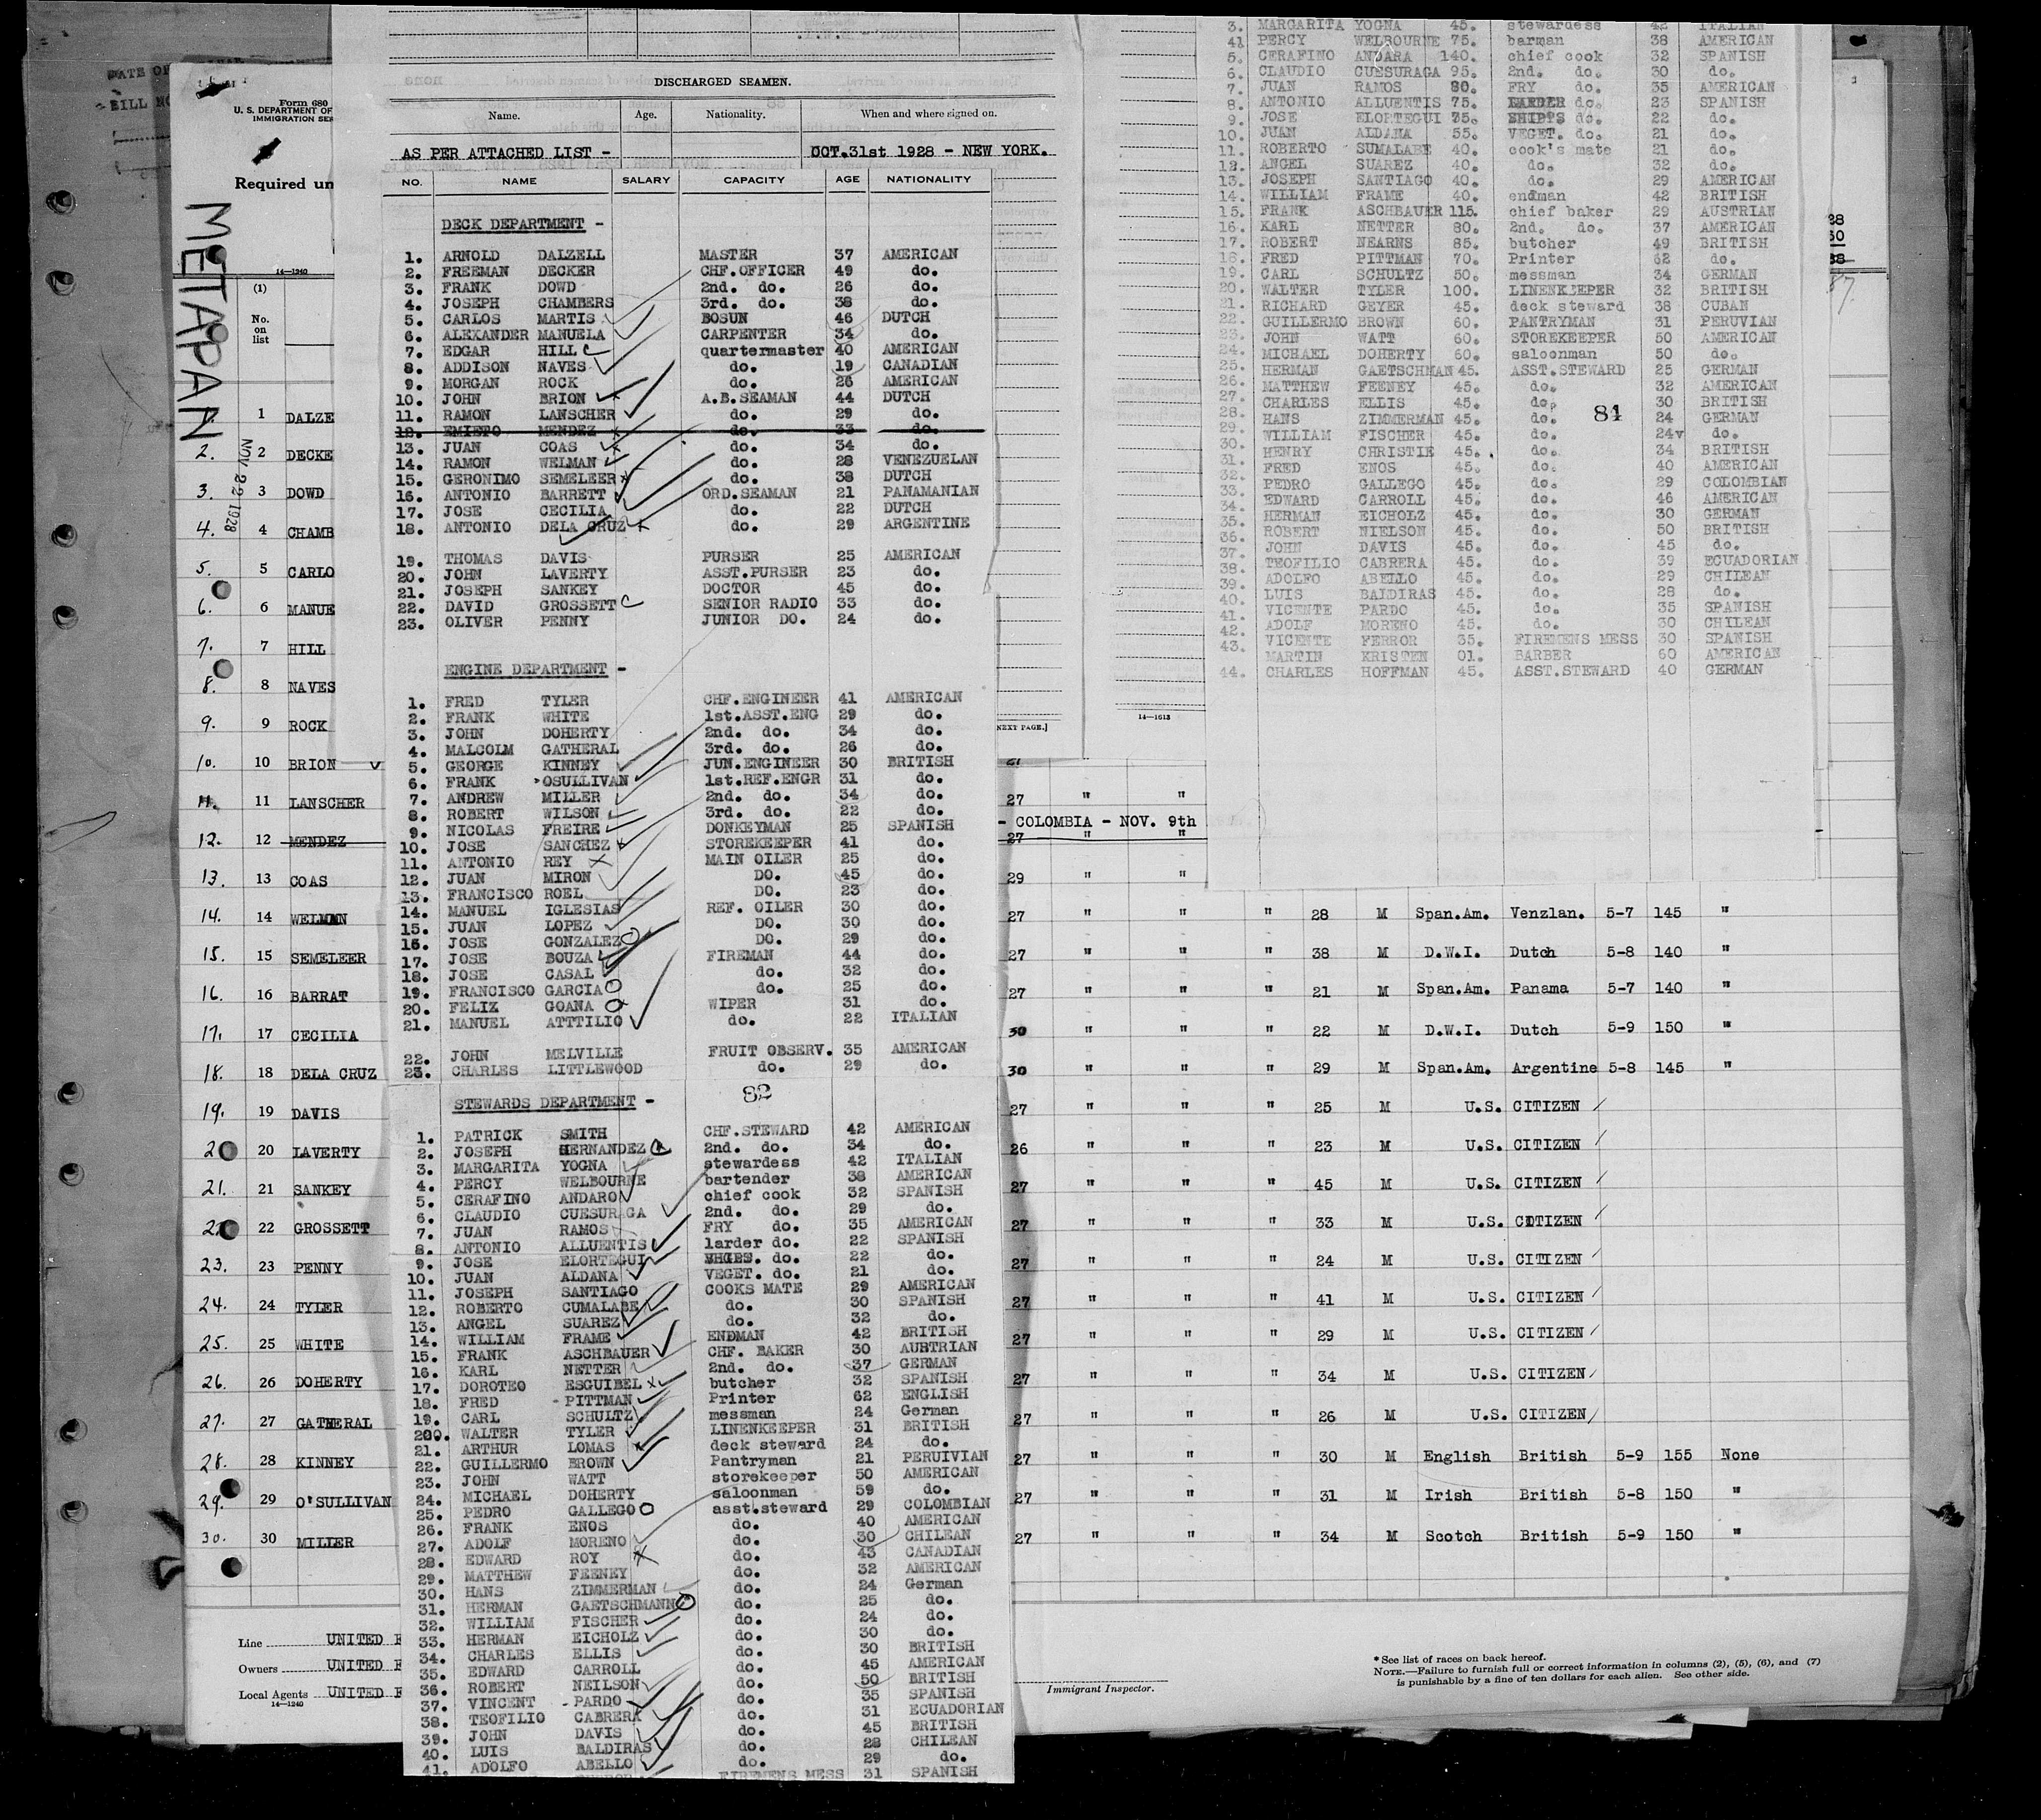 DATE OF
BILL NO
Form 680
U. S. DEPARTMENT OF
IMMIGRATION SER
Required un
14—1240
METAPAN
NOV 22 1928
(1)
No.
on
list
1 DALZE
2. 2 DECKE
3. 3 DOWD
4. 4 CHAMB
5. 5 CARLO
6. 6 MANUE
7. 7 HILL
8. 8 NAVES
9. 9 ROCK
10. 10 BRION
11. 11 LANSCHER
12. 12 MENDEZ
13. 13 COAS
14. 14 WELMAN
15. 15 SEMELEER
16. 16 BARRAT
17. 17 CECILIA
18. 18 DELA CRUZ
19. 19 DAVIS
20 LAVERTY
21. 21 SANKEY
22 GROSSETT
23. 23 PENNY
24. 24 TYLER
25. 25 WHITE
26. 26 DOHERTY
27. 27 GATHERAL
28. 28 KINNEY
29. 29 O'SULLIVAN
30. 30 MILLER
Line UNITED F
Owners UNITED F
Local Agents UNITED F
14—1240
DISCHARGED SEAMEN.
Name. Age. Nationality. When and where signed on.
AS PER ATTACHED LIST - OCT.31st 1928 - NEW YORK.
NO. NAME SALARY CAPACITY AGE NATIONALITY
DECK DEPARTMENT -
1. ARNOLD DALZELL MASTER 37 AMERICAN
2. FREEMAN DECKER CHF.OFFICER 49 do.
3. FRANK DOWD 2nd. do. 26 do.
4. JOSEPH CHAMBERS 3rd. do. 38 do.
5. CARLOS MARTIS BOSUN 46 DUTCH
6. ALEXANDER MANUELA CARPENTER 34 do.
7. EDGAR HILL quartermaster 40 AMERICAN
8. ADDISON NAVES do. 19 CANADIAN
9. MORGAN ROCK do. 26 AMERICAN
10. JOHN BRION A.B.SEAMAN 44 DUTCH
11. RAMON LANSCHER do. 29 do.
12. EMIETO MENDEZ do. 33 do.
13. JUAN COAS do. 34 do.
14. RAMON WELMAN do. 28 VENEZUELAN
15. GERONIMO SEMELEER do. 38 DUTCH
16. ANTONIO BARRETT ORD.SEAMAN 21 PANAMANIAN
17. JOSE CECILIA do. 22 DUTCH
18. ANTONIO DELA CRUZ do. 29 ARGENTINE
19. THOMAS DAVIS PURSER 25 AMERICAN
20. JOHN LAVERTY ASST.PURSER 23 do.
21. JOSEPH SANKEY DOCTOR 45 do.
22. DAVID GROSSETT SENIOR RADIO 33 do.
23. OLIVER PENNY JUNIOR DO. 24 do.
ENGINE DEPARTMENT -
1. FRED TYLER CHF.ENGINEER 41 AMERICAN
2. FRANK WHITE 1st.ASST.ENG 29 do.
3. JOHN DOHERTY 2nd. do. 34 do.
4. MALCOLM GATHERAL 3rd. do. 26 do.
5. GEORGE KINNEY JUN.ENGINEER 30 BRITISH
6. FRANK OSULLIVAN 1st.REF.ENGR 31 do.
7. ANDREW MILLER 2nd. do. 34 do.
8. ROBERT WILSON 3rd. do. 22 do.
9. NICOLAS FREIRE DONKEYMAN 25 SPANISH
10. JOSE SANCHEZ STOREKEEPER 41 do.
11. ANTONIO REY MAIN OILER 25 do.
12. JUAN MIRON DO. 45 do.
13. FRANCISCO ROEL DO. 23 do.
14. MANUEL IGLESIAS REF. OILER 30 do.
15. JUAN LOPEZ DO. 30 do.
16. JOSE GONZALEZ DO. 29 do.
17. JOSE BOUZA FIREMAN 44 do.
18. JOSE CASAL do. 32 do.
19. FRANCISCO GARCIA do. 25 do.
20. FELIZ GOANA WIPER 31 do.
21. MANUEL ATTTILIO do. 22 ITALIAN
22. JOHN MELVILLE FRUIT OBSERV. 35 AMERICAN
23. CHARLES LITTLEWOOD do. 29 do.
82
STEWARDS DEPARTMENT -
1. PATRICK SMITH CHF.STEWARD 42 AMERICAN
2. JOSEPH HERNANDEZ 2nd. do. 34 do.
3. MARGARITA YOGNA stewardess 42 ITALIAN
4. PERCY WELBOURNE bartender 38 AMERICAN
5. CERAFINO ANDARO chief cook 32 SPANISH
6. CLAUDIO CUESURAGA 2nd. do. 29 do.
7. JUAN RAMOS FRY do. 35 AMERICAN
8. ANTONIO ALLUENTIS larder do. 22 SPANISH
9. JOSE ELORTEGUI do. 22 do.
10. JUAN ALDANA VEGET. do. 21 do.
11. JOSEPH SANTIAGO COOKS MATE 29 AMERICAN
12. ROBERTO CUMALABE do. 30 SPANISH
13. ANGEL SUAREZ do. 32 do.
14. WILLIAM FRAME ENDMAN 42 BRITISH
15. FRANK ASCHBAUER CHF. BAKER 30 AUSTRIAN
16. KARL NETTER 2nd. do. 37 GERMAN
17. DOROTEO ESGUIBEL butcher 32 SPANISH
18. FRED PITTMAN Printer 62 ENGLISH
19. CARL SCHULTZ messman 24 German
200. WALTER TYLER LINENKEEPER 31 BRITISH
21. ARTHUR LOMAS deck steward 24 do.
22. GUILLERMO BROWN Pantryman 21 PERUIVIAN
23. JOHN WATT storekeeper 50 AMERICAN
24. MICHAEL DOHERTY saloonman 59 do.
25. PEDRO GALLEGO asst.steward 29 COLOMBIAN
26. FRANK ENOS do. 40 AMERICAN
27. ADOLF MORENO do. 30 CHILEAN
28. EDWARD ROY do. 43 CANADIAN
29. MATTHEW FEENEY do. 32 AMERICAN
30. HANS ZIMMERMAN do. 24 German
31. HERMAN GAETSCHMANN do. 25 do.
32. WILLIAM FISCHER do. 24 do.
33. HERMAN EICHOLZ do. 30 do.
34. CHARLES ELLIS do. 30 BRITISH
35. EDWARD CARROLL do. 45 AMERICAN
36. ROBERT NEILSON do. 50 BRITISH
37. VINCENT PARDO do. 35 SPANISH
38. TEOFILIO CABRERA do. 31 ECUADORIAN
39. JOHN DAVIS do. 45 BRITISH
40. LUIS BALDIRAS do. 28 CHILEAN
41. ADOLFO ABELLO do. 29 do.
FIREMENS MESS 31 SPANISH
3. MARGARITA YOGNA 45. stewardess 42 ITALIAN
41 PERCY WELBOURNE 75. barman 38 AMERICAN
5. CERAFINO ANDARA 140. chief cook 32 SPANISH
6. CLAUDIO CUESURAGA 95. 2nd. do. 30 do.
7. JUAN RAMOS 80. FRY do. 35 AMERICAN
8. ANTONIO ALLUENTIS 75. LARDER do. 23 SPANISH
9. JOSE ELORTEGUI 75. do. 22 do.
10. JUAN ALDANA 55. VEGET. do. 21 do.
11. ROBERTO SUMALABE 40. cook's mate 21 do.
12. ANGEL SUAREZ 40. do. 32 do.
13. JOSEPH SANTIAGO 40. do. 29 AMERICAN
14. WILLIAM FRAME 40. endman 42 BRITISH
15. FRANK ASCHBAUER 115. chief baker 29 AUSTRIAN
16. KARL NETTER 80. 2nd. do. 37 AMERICAN
17. ROBERT NEARNS 85. butcher 49 BRITISH
18. FRED PITTMAN 70. Printer 62 do.
19. CARL SCHULTZ 50. messman 34 GERMAN
20. WALTER TYLER 100. LINENKEEPER 32 BRITISH
21. RICHARD GEYER 45. deck steward 38 CUBAN
22. GUILLERMO BROWN 60. PANTRYMAN 31 PERUVIAN
23. JOHN WATT 60. STOREKEEPER 50 AMERICAN
24. MICHAEL DOHERTY 60. saloonman 50 do.
25. HERMAN GAETSCHMAN 45. ASST.STEWARD 25 GERMAN
26. MATTHEW FEENEY 45. do. 32 AMERICAN
27. CHARLES ELLIS 45. do. 30 BRITISH
84
28. HANS ZIMMERMAN 45. do. 24 GERMAN
29. WILLIAM FISCHER 45. do. 24v do.
30. HENRY CHRISTIE 45. do. 34 BRITISH
31. FRED ENOS 45. do. 40 AMERICAN
32. PEDRO GALLEGO 45. do. 29 COLOMBIAN
33. EDWARD CARROLL 45. do. 46 AMERICAN
34. HERMAN EICHOLZ 45. do. 30 GERMAN
35. ROBERT NIELSON 45. do. 50 BRITISH
36. JOHN DAVIS 45. do. 45 do.
37. TEOFILIO CABRERA 45. do. 39 ECUADORIAN
38. ADOLFO ABELLO 45. do. 29 CHILEAN
39. LUIS BALDIRAS 45. do. 28 do.
40. VICENTE PARDO 45. do. 35 SPANISH
41. ADOLF MORENO 45. do. 30 CHILEAN
42. VICENTE FERROR 35. FIREMENS MESS 30 SPANISH
43. MARTIN KRISTEN 01. BARBER 60 AMERICAN
44. CHARLES HOFFMAN 45. ASST.STEWARD 40 GERMAN
14—1613
NEXT PAGE.]
27 " "
- COLOMBIA - NOV. 9th
27 " "
29 " "
27 " " " 28 M Span.Am. Venzlan. 5-7 145 "
27 " " " 38 M D.W.I. Dutch 5-8 140 "
27 " " " 21 M Span.Am. Panama 5-7 140 "
30 " " " 22 M D.W.I. Dutch 5-9 150 "
30 " " " 29 M Span.Am. Argentine 5-8 145 "
27 " " " 25 M U.S. CITIZEN
26 " " " 23 M U.S. CITIZEN
27 " " " 45 M U.S. CITIZEN
27 " " " 33 M U.S. CITIZEN
27 " " " 24 M U.S. CITIZEN
27 " " " 41 M U.S. CITIZEN
27 " " " 29 M U.S. CITIZEN
27 " " " 34 M U.S. CITIZEN
27 " " " 26 M U.S. CITIZEN
27 " " " 30 M English British 5-9 155 None
27 " " " 31 M Irish British 5-8 150 "
27 " " " 34 M Scotch British 5-9 150 "
Immigrant Inspector.
* See list of races on back hereof.
NOTE.—Failure to furnish full or correct information in columns (2), (5), (6), and (7)
is punishable by a fine of ten dollars for each alien. See other side.